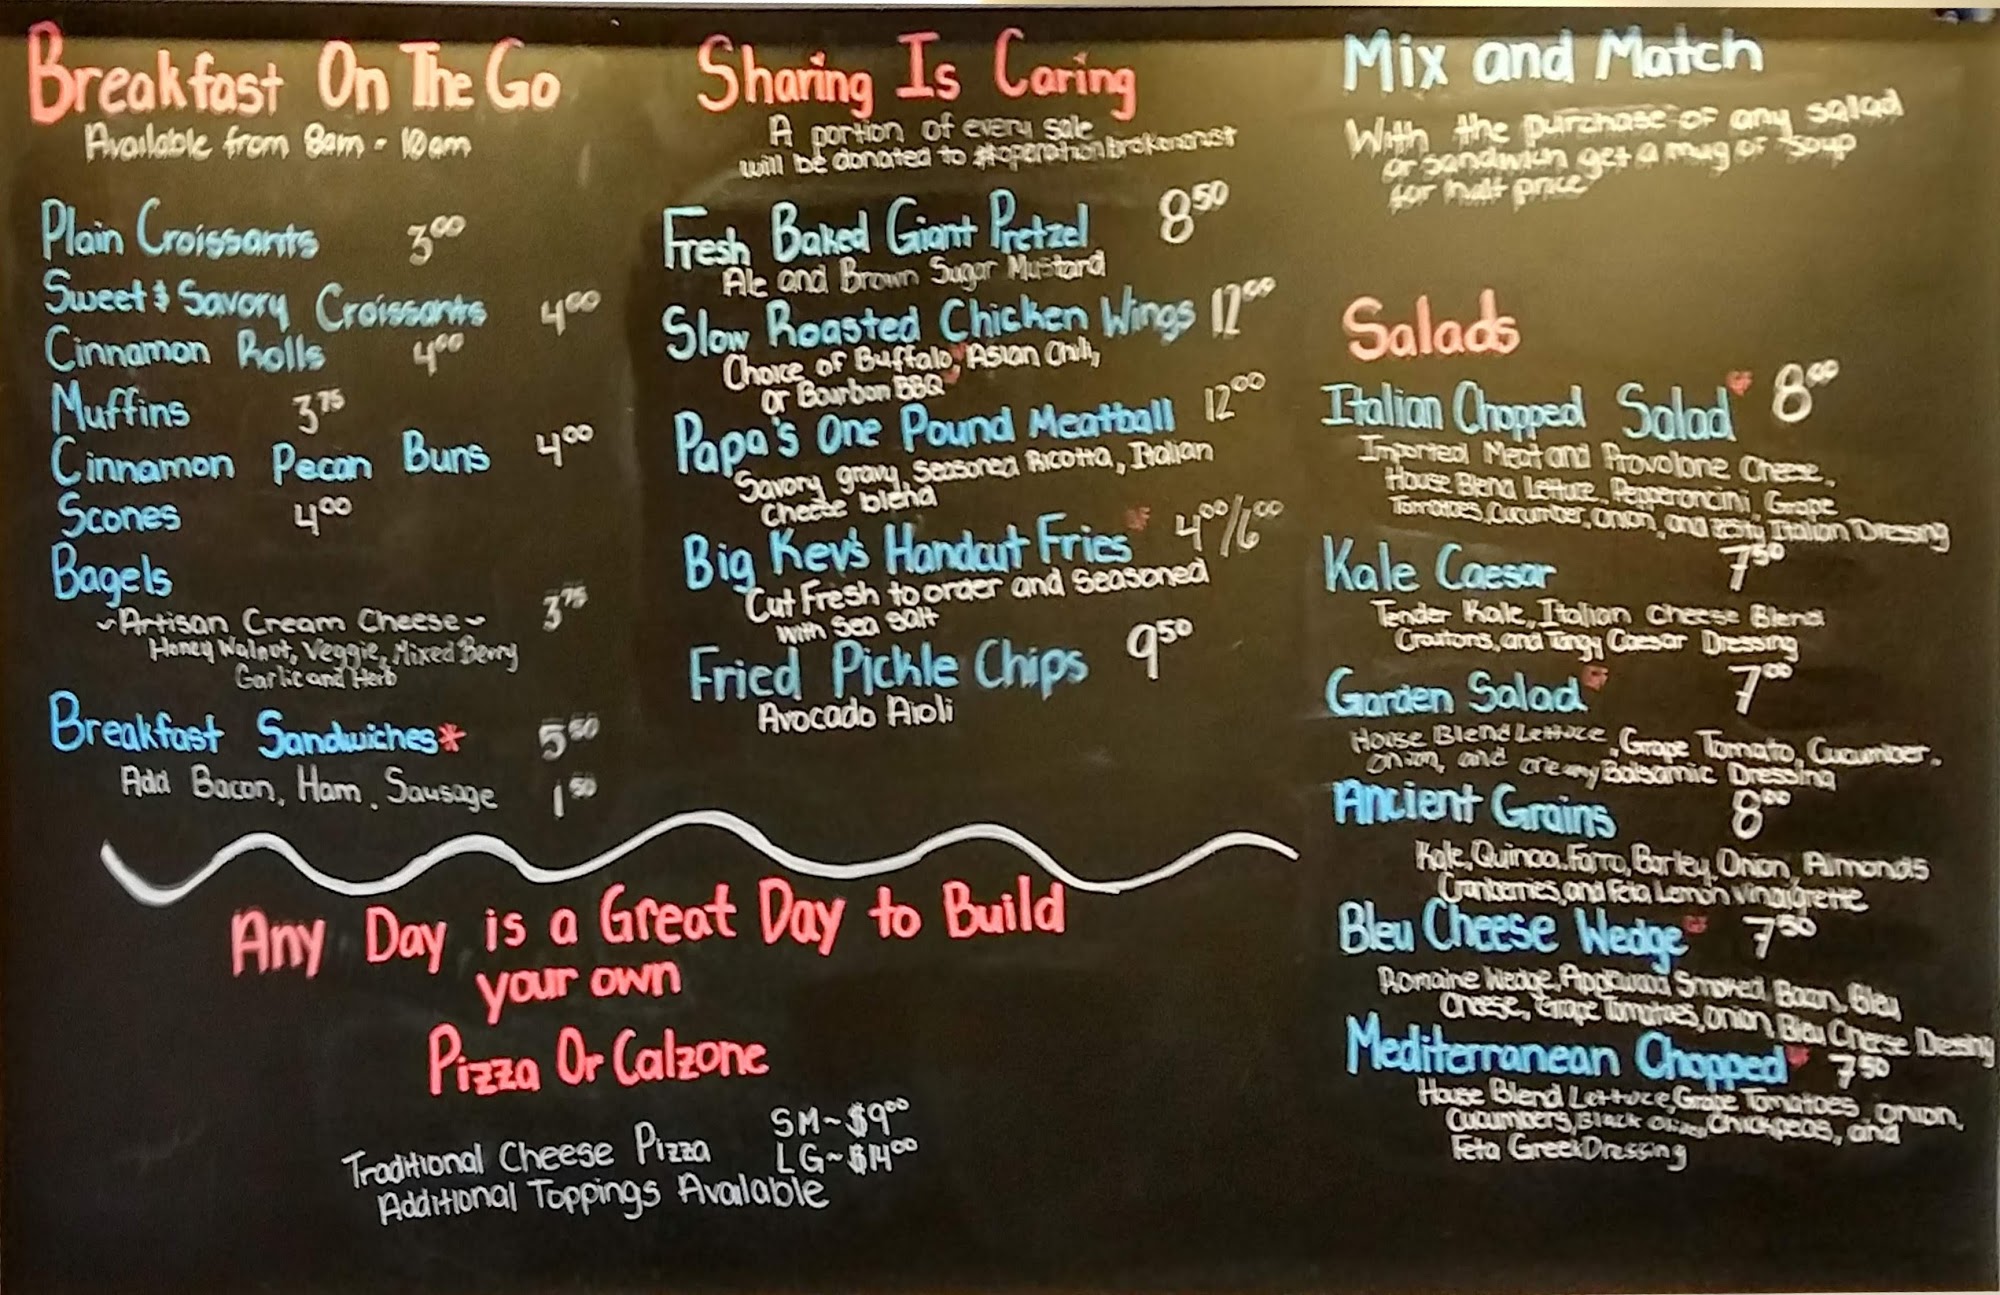 Breakfast On The Go
Available from 8am - 10am
Plain Croissants 3.00
Sweet & Savory Croissants 4.00
Cinnamon Rolls 4.00
Muffins 3.75
Cinnamon Pecan Buns 4.00
Scones 4.00
Bagels
~Artisan Cream Cheese~ 3.75
Honey Walnut, Veggie, Mixed Berry
Garlic and Herb
Breakfast Sandwiches* 5.50
Add Bacon, Ham, Sausage 1.50
Sharing Is Caring
A portion of every sale
will be donated to #operationbrokenarist
Fresh Baked Giant Pretzel 8.50
Ale and Brown Sugar Mustard
Slow Roasted Chicken Wings 12.00
Choice of Buffalo, Asian Chili,
or Bourbon BBQ
Papa's One Pound Meatball 12.00
Savory gravy, Seasoned Ricotta, Italian
Cheese blend
Big Kev's Handcut Fries GF 4.00/6.00
Cut Fresh to order and Seasoned
with Sea Salt
Fried Pickle Chips 9.50
Avocado Aioli
Any Day is a Great Day to Build
your own
Pizza Or Calzone
SM~$9.00
Traditional Cheese Pizza LG~$14.00
Additional Toppings Available
Mix and Match
With the purchase of any salad
or sandwich get a mug of soup
for half price
Salads
Italian Chopped Salad GF 8.00
Imported Meat and Provolone Cheese,
House Blend Lettuce, Pepperoncini, Grape
Tomatoes, Cucumber, onion, and zesty Italian Dressing
Kale Caesar 7.50
Tender Kale, Italian Cheese Blend
Croutons, and Tangy Caesar Dressing
Garden Salad GF 7.00
House Blend Lettuce, Grape Tomato, Cucumber,
onion, and creamy Balsamic Dressing
Ancient Grains 8.00
Kale, Quinoa, Farro, Barley, Onion, Almonds
Cranberries, and Feta Lemon Vinaigrette
Bleu Cheese Wedge GF 7.50
Romaine Wedge, Applewood Smoked Bacon, Bleu
Cheese, Grape Tomatoes, onion, Bleu Cheese Dressing
Mediterranean Chopped 7.50
House Blend Lettuce, Grape Tomatoes, onion,
Cucumbers, Black Olives, Chickpeas, and
Feta Greek Dressing